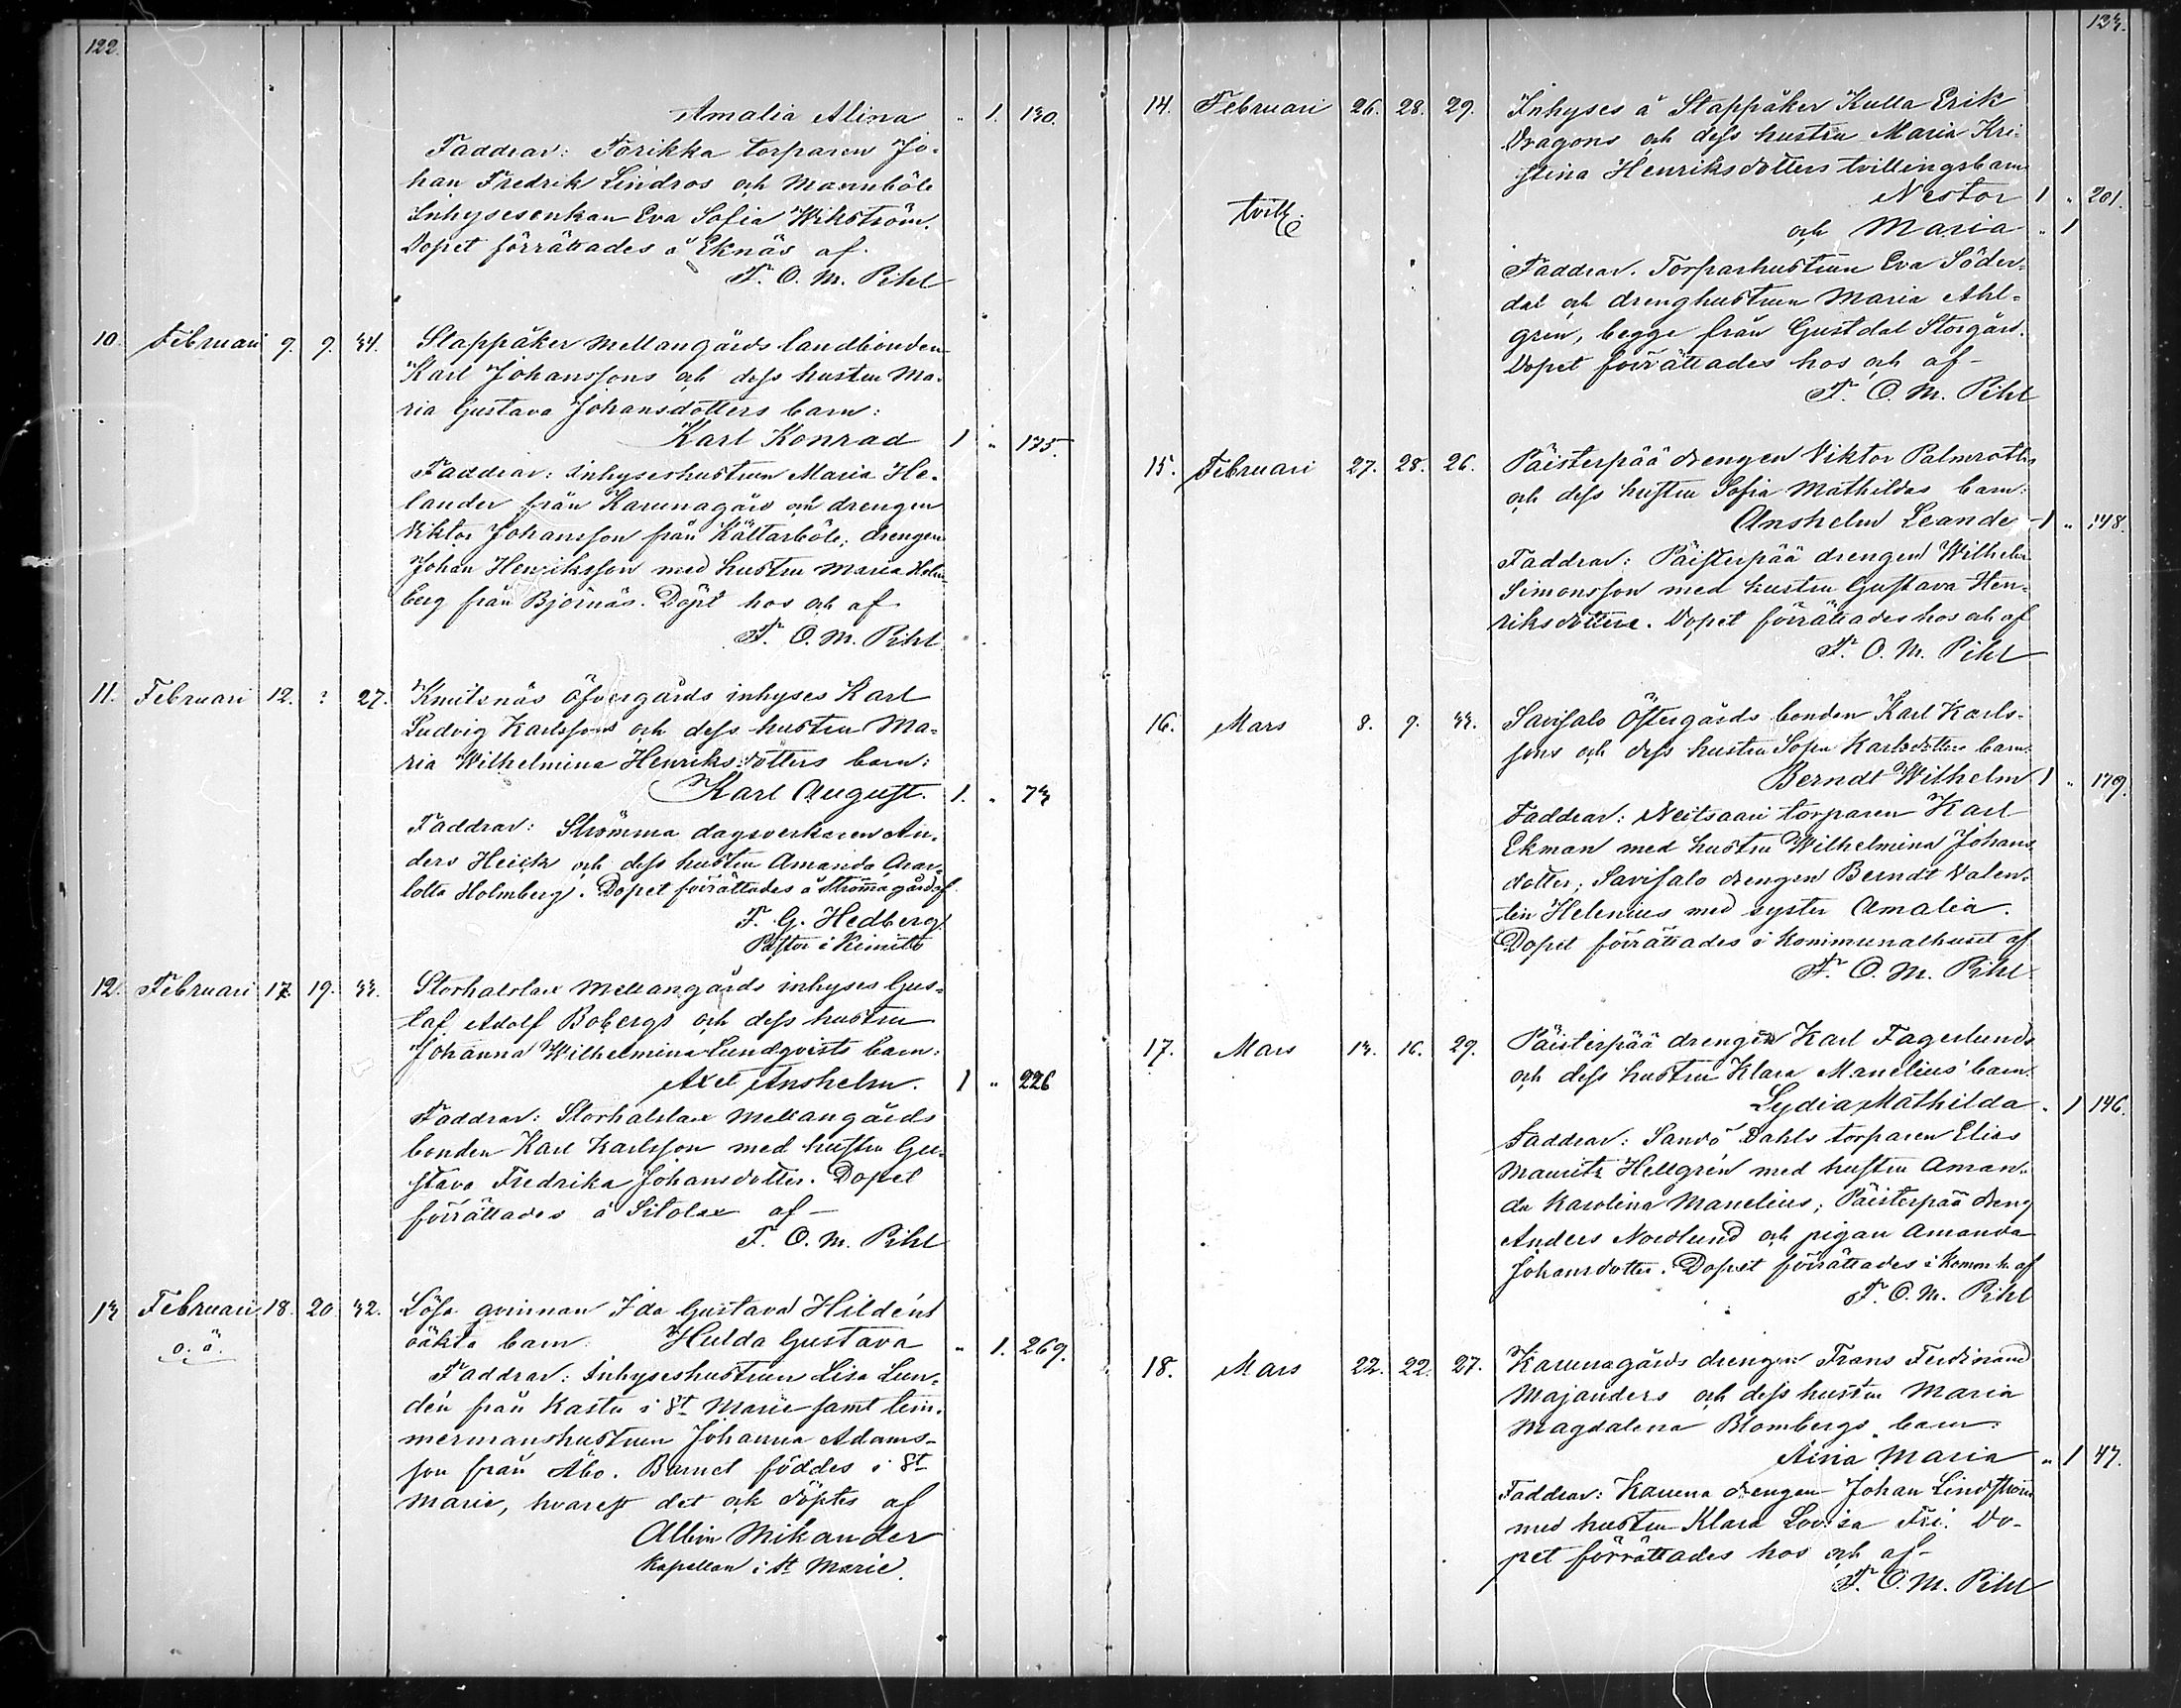 122.
Amalia Alina " 1. 130.
Faddrar: Förikka torparen Jo-
han Fredrik Lindros och Mannböle
Inhysesenkan Eva Sofia Wikström.
Dopet förrättades å Eknäs af
F. O. M. Pihl
10. Februari 9. 9. 34. Slappåker Mellangårds landbonden
Karl Johanssons och dess hustru Ma-
ria Gustava Johansdotters barn:
Karl Konrad 1 " 175.
Faddrar: inhyseshustrun Maria He-
lander från Karunagård och drengen
Viktor Johansson från Kättarböle; drengen
Johan Henriksson med hustru Maria Holm-
berg från Björnäs. Döpt hos och af
F. O. M. Pihl
11. Februari 12. : 27. Knutsnäs Öfvergårds inhyses Karl
Ludvig Karlssons och dess hustru Ma-
ria Wilhelmina Henriksdotters barn:
Karl August. 1. " 73
Faddrar: Strömma dagsverkaren An-
ders Heick och dess hustru Amanda Char-
lotta Holmberg. Dopet förrättades å Strömma gård af
F. G. Hedberg
Pastor i Kimito
12. Februari 17. 19. 33. Storhalslax Mellangårds inhyses Gus-
taf Adolf Bobergs och dess hustru
Johanna Wilhelmina Lundqvists barn:
Axel Anshelm. 1 " 226
Faddrar: Storhalslax Mellangårds
bonden Karl Karlsson med hustru Gu-
stava Fredrika Johansdotter. Dopet
förrättades å Sitolax af
F. O. M. Pihl
13 Februari 18. 20 32. Lösa qvinnan Ida Gustava Hildéns
o. ä. oäkta barn: Hulda Gustava " 1. 269.
Faddrar: Inhyseshustrun Lisa Lun-
dén från Kastu i St Marie samt tim-
mermanshustrun Johanna Adams-
son från Åbo. Barnet föddes i St
Marie, hvarest det och döptes af
Albin Mikander
Kapellan i St Marie.
123.
14. Februari 26. 28. 29. Inhyses å Slappåker Kulla Erik
Dragons och dess hustru Maria Kri-
stina Henriksdotters tvillingsbarn
Nestor 1 " 201.
tvill.
och Maria " 1
Faddrar. Torparhustrun Eva Söder-
dal och drenghustrun Maria Ahl-
gren, begge från Gustdal Storgård.
Dopet förrättades hos och af
F. O. M. Pihl
15. Februari 27. 28. 26. Päisterpää drengen Viktor Palmroths
och dess hustru Sofia Mathildas barn:
Anshelm Leander 1 " 148.
Faddrar: Päisterpää drengen Wilhelm
Simonsson med hustru Gustava Hen-
riksdotter. Dopet förrättades hos och af
F. O. M. Pihl
16. Mars 8. 9. 33. Savisalo Östergårds bonden Karl Karls-
sons och dess hustru Sofia Karlsdotters barn:
Berndt Wilhelm 1 " 179.
Faddrar: Neitsaari torparen Karl
Ekman med hustru Wilhelmina Johans-
dotter; Savisalo drengen Berndt Valen-
tin Helenius med syster Amalia.
Dopet förrättades i Kommunalhuset af
F. O. M. Pihl
17. Mars 13. 16. 29. Päisterpää drengen Karl Fagerlunds
och dess hustru Klara Manelius' barn:
Lydia Mathilda " 1 146.
Faddrar: Sandö Dahls torparen Elias
Mauritz Hellgrén med hustru Aman-
da Karolina Manelius; Päisterpää dreng
Anders Nordlund och pigan Amanda
Johansdotter. Dopet förrättades i Komm. h. af
F. O. M. Pihl
18. Mars 22. 22. 27. Karunagårds drengen Frans Ferdinand
Majanders och dess hustru Maria
Magdalena Blombergs barn:
Aina Maria " 1 47.
Faddrar: Karuna drengen Johan Lindström
med hustru Klara Lovisa Fri. Do-
pet förrättades hos och af
F. O. M. Pihl